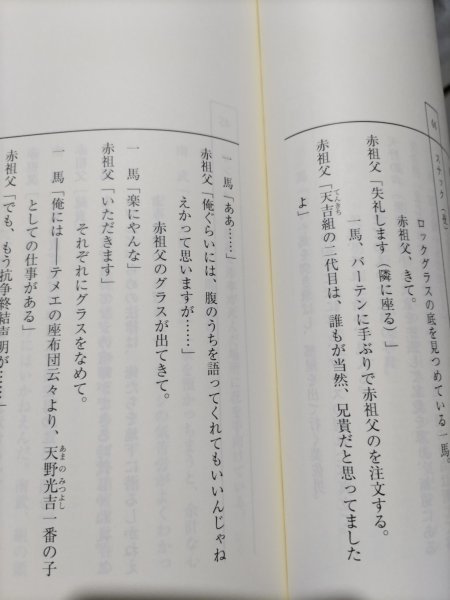 46　スナック「　」
ロックグラスの底を見つめている一馬。
赤祖父、きて。
赤祖父「失礼します(隣に座る)」
一馬、バーテンに手ぶりで赤祖父のを注文する。
赤祖父「天吉組の二代目は、誰もが当然、兄貴だと思ってました
よ」
一　馬「ああ……」
赤祖父「俺ぐらいには、腹のうちを語ってくれてもいいんじゃね
えかって思いますが……」
赤祖父のグラスが出てきて。
一　馬「楽にやんな」
赤祖父「いただきます」
それぞれにグラスをなめて。
一　馬「俺には――テメエの座布団云々より、天野光吉一番の子
としての仕事がある」
赤祖父「でも、もう抗争終結声明が……」